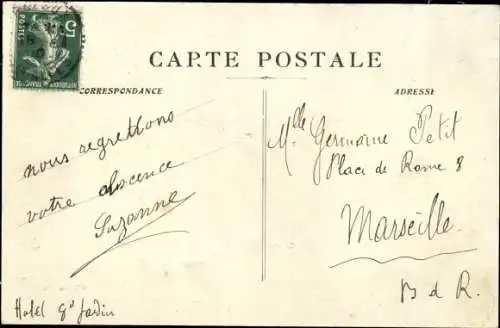 5
POSTES
CARTE POSTALE
CORRESPONDANCE
ADRESSE
nous regrettons
votre absence
Suzanne
Hotel Gd Jardin
Melle Germaine Petit
Place de Rome 8
Marseille.
B d R.